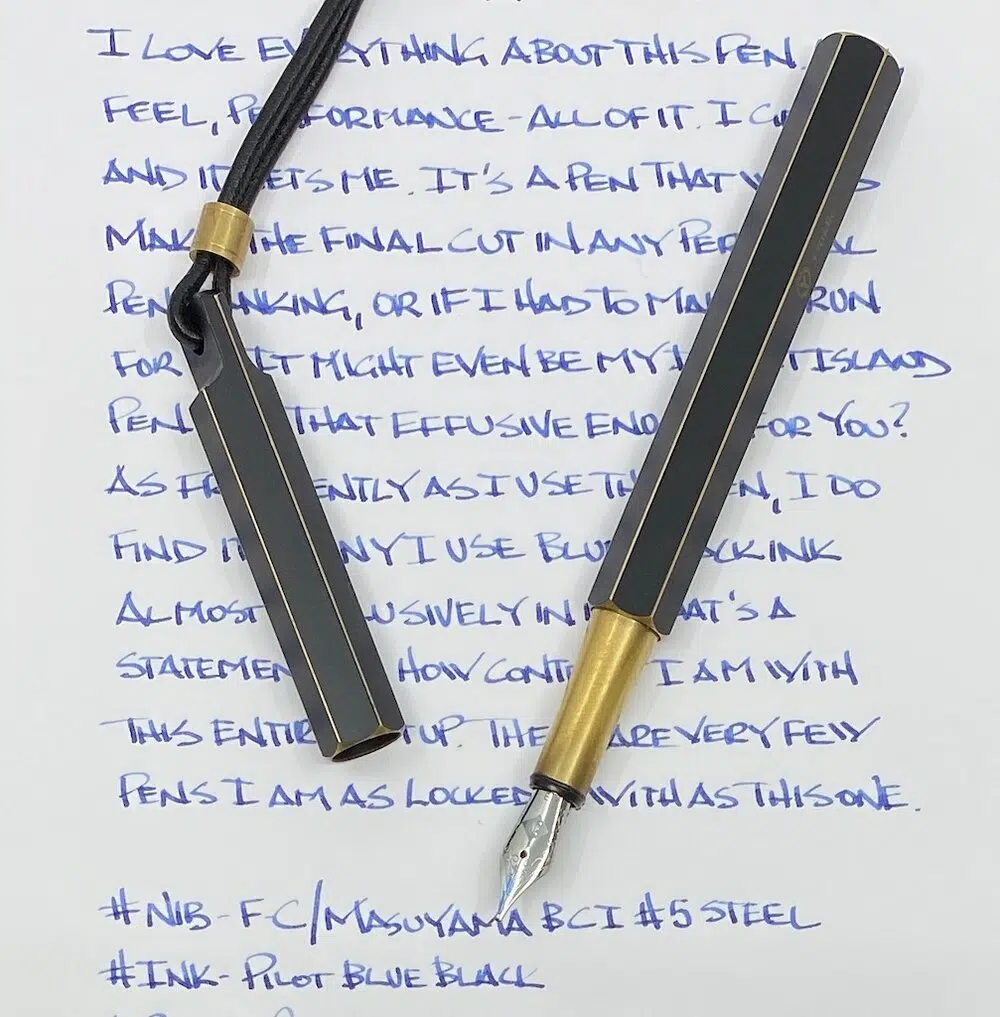 I LOVE EVERYTHING ABOUT THIS PEN.
FEEL, PERFORMANCE - ALL OF IT. I
AND IT GETS ME. IT'S A PEN THAT WOULD
MAKE THE FINAL CUT IN ANY PERSONAL
PEN RANKING, OR IF I HAD TO MAKE RUN
FOR IT MIGHT EVEN BE MY DESERT ISLAND
PEN THAT EFFUSIVE ENOUGH FOR YOU?
AS FREQUENTLY AS I USE THIS PEN, I DO
FIND IT FUNNY I USE BLUE BLACK INK
ALMOST EXCLUSIVELY IN IT. THAT'S A
STATEMENT HOW CONTENT I AM WITH
THIS ENTIRE SETUP. THERE ARE VERY FEW
PENS I AM AS LOCKED WITH AS THIS ONE.
#NIB - FC/MASUYAMA BCI #5 STEEL
#INK - PILOT BLUE BLACK